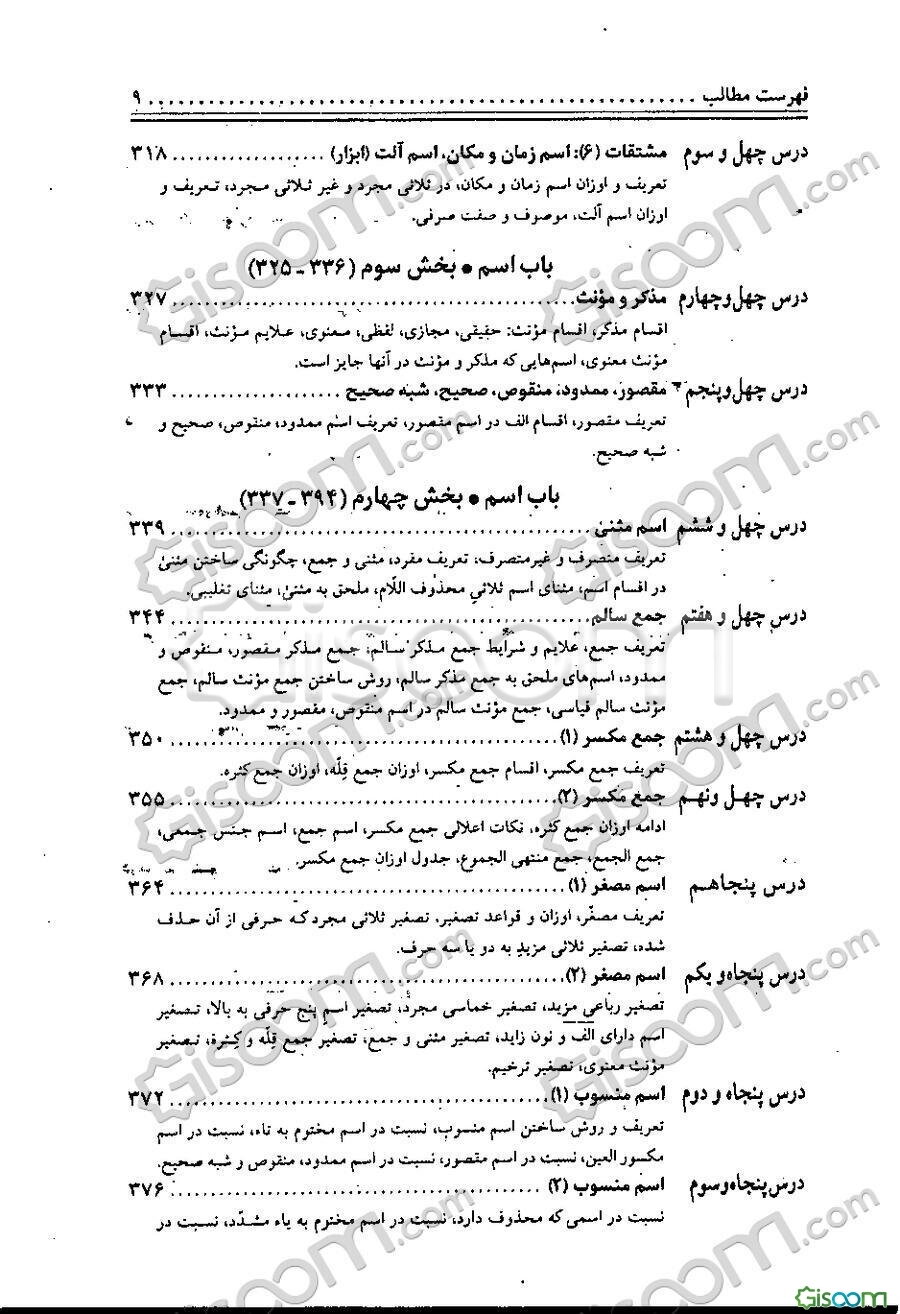 فهرست مطالب ........................................................ ۹
درس چهل و سوم مشتقات (۶): اسم زمان و مکان، اسم آلت (ابزار) ................... ۳۱۸
تعریف و اوزان اسم زمان و مکان، در ثلاثی مجرد و غیر ثلاثی مجرد، تعریف و
اوزان اسم آلت، موصوف و صفت صرفی.
باب اسم • بخش سوم (۳۳۶ - ۳۲۵)
درس چهل و چهارم مذکر و مؤنث .................................................. ۳۲۷
اقسام مذکر، اقسام مؤنث: حقیقی، مجازی، لفظی، معنوی، علایم مؤنث، اقسام
مؤنث معنوی، اسم‌هایی که مذکر و مؤنث در آنها جایز است.
درس چهل و پنجم مقصور، ممدود، منقوص، صحیح، شبه صحیح ..................... ۳۳۳
تعریف مقصور، اقسام الف در اسم مقصور، تعریف اسم ممدود، منقوص، صحیح و
شبه صحیح.
باب اسم • بخش چهارم (۳۹۴ - ۳۳۷)
درس چهل و ششم اسم مثنیٰ .................................................. ۳۳۹
تعریف متصرف و غیرمتصرف، تعریف مفرد، مثنی و جمع، چگونگی ساختن مثنیٰ
در اقسام اسم، مثنای اسم ثلاثیِ محذوف اللّام، ملحق به مثنیٰ، مثنای تغلیبی.
درس چهل و هفتم جمع سالم .................................................. ۳۴۴
تعریف جمع، علایم و شرایط جمع مذکر سالم، جمع مذکر مقصور، منقوص و
ممدود، اسم‌های ملحق به جمع مذکر سالم، روش ساختن جمع مؤنث سالم، جمع
مؤنث سالم قیاسی، جمع مؤنث سالم در اسم منقوص، مقصور و ممدود.
درس چهل و هشتم جمع مکسر (۱) .............................................. ۳۵۰
تعریف جمع مکسر، اقسام جمع مکسر، اوزان جمع قِلّه، اوزان جمع کثره.
درس چهـل ونهـم جمع مکسر (۲) .............................................. ۳۵۵
ادامه اوزان جمع کثره، نکات اعلالی جمع مکسر، اسم جمع، اسم جنس جمعی،
جمع الجمع، جمع منتهی الجموع، جدول اوزان جمع مکسر.
درس پنجاهـم اسم مصغر (۱) ................................................ ۳۶۴
تعریف مصغّر، اوزان و قواعد تصغیر، تصغیر ثلاثی مجرد که حرفی از آن حذف
شده، تصغیر ثلاثی مزید به دو یا سه حرف.
درس پنجاه و یکم اسم مصغر (۲) .............................................. ۳۶۸
تصغیر رباعی مزید، تصغیر خماسی مجرد، تصغیر اسم پنج حرفی به بالا، تصغیر
اسم دارای الف و نون زاید، تصغیر مثنی و جمع، تصغیر جمع قِلّه و کِثرة، تصغیر
مؤنث معنوی، تصغیر ترخیم.
درس پنجاه و دوم اسم منسوب (۱) .............................................. ۳۷۲
تعریف و روش ساختن اسم منسوب، نسبت در اسم مختوم به تاء، نسبت در اسم
مکسور العین، نسبت در اسم مقصور، نسبت در اسم ممدود، منقوص و شبه صحیح.
درس پنجاه و سوم اسم منسوب (۲) .............................................. ۳۷۶
نسبت در اسمی که محذوف دارد، نسبت در اسم مختوم به یاء مشدّد، نسبت در
Gisoom